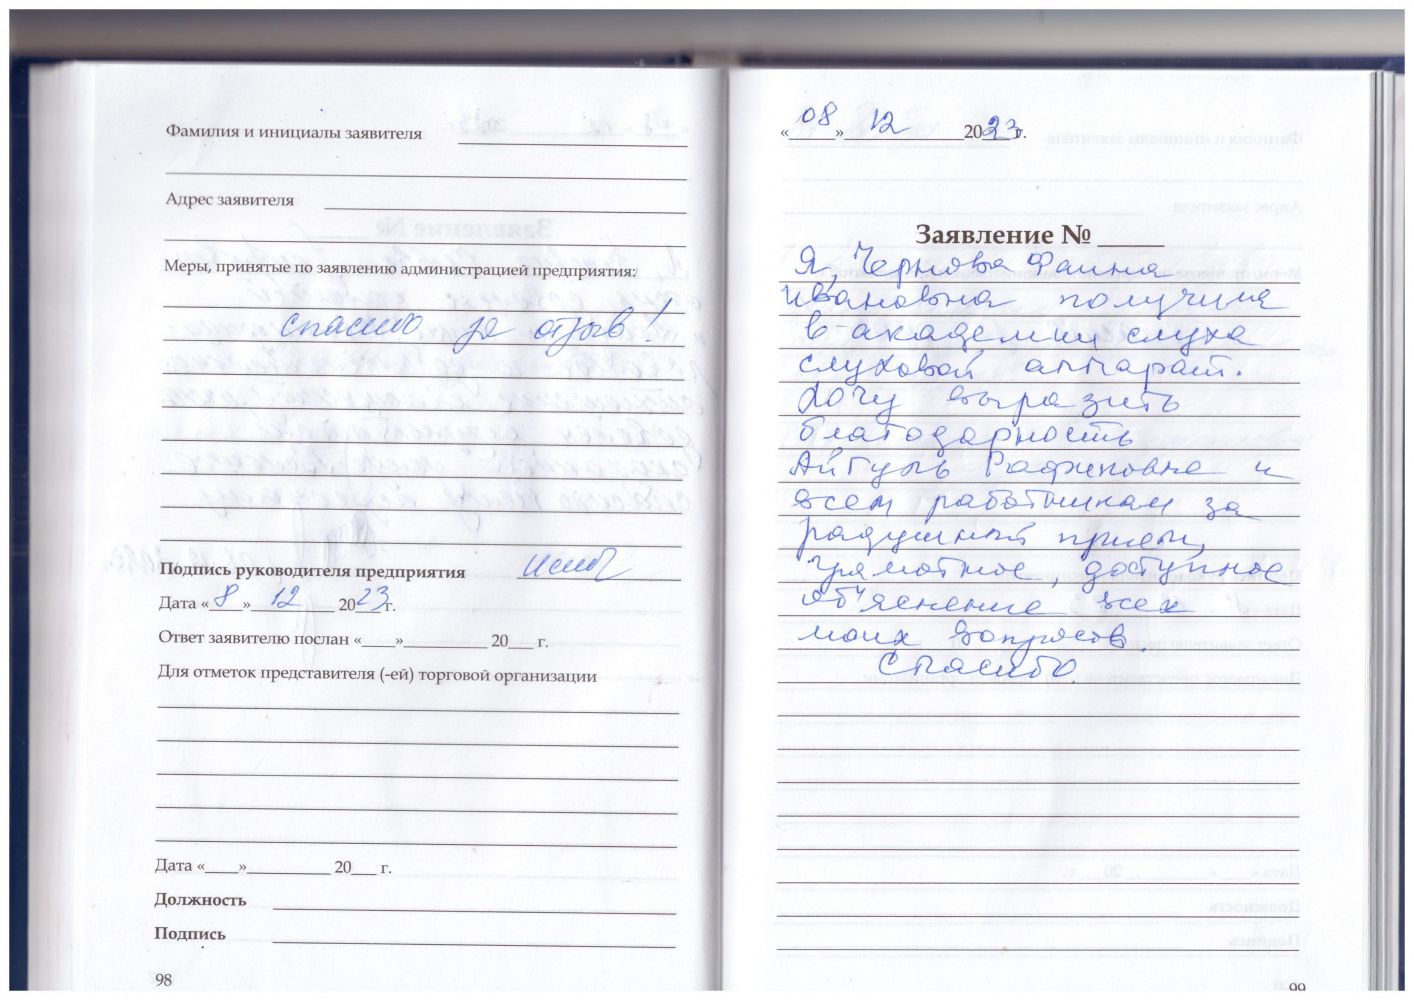 Фамилия и инициалы заявителя
Адрес заявителя
Меры, принятые по заявлению администрацией предприятия:
спасибо за отзыв!
Подпись руководителя предприятия
Дата «8» 12 2023 г.
Ответ заявителю послан «____»__________ 20___ г.
Для отметок представителя (-ей) торговой организации
Дата «____»__________ 20___ г.
Должность
Подпись
98
«08» 12 2023 г.
Заявление № _____
Я, Чернова Фаина
Ивановна получила
в академии слуха
слуховой аппарат.
Хочу выразить
благодарность
Айгуль Рафиковне и
всем работникам за
радушный прием,
грамотное, доступное
объяснение всех
моих вопросов.
Спасибо.
99